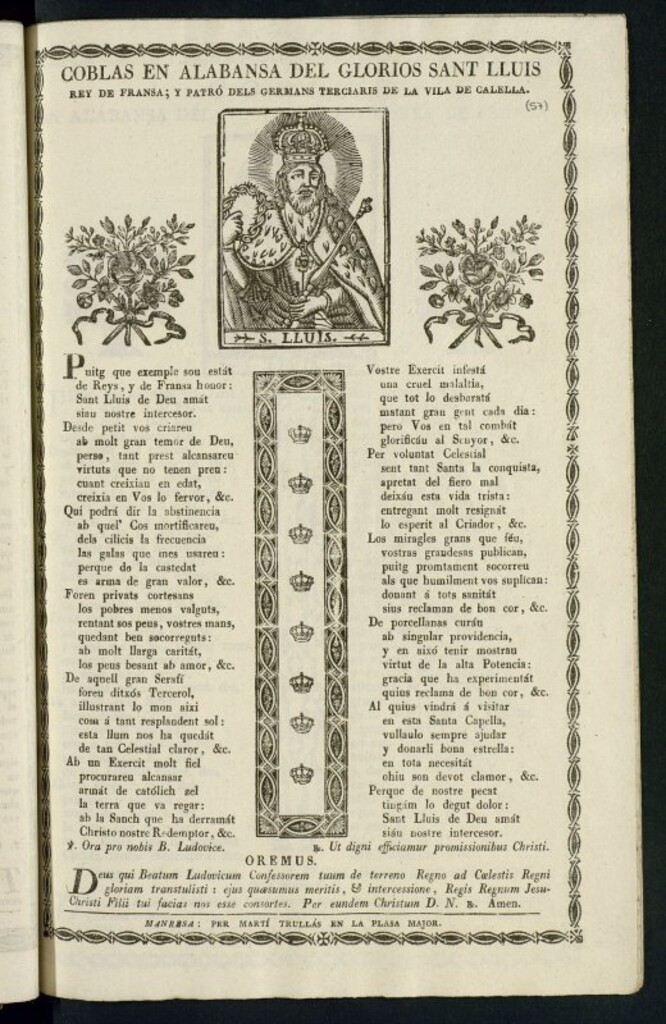 COBLAS EN ALABANSA DEL GLORIOS SANT LLUIS
REY DE FRANSA; Y PATRÓ DELS GERMANS TERCIARIS DE LA VILA DE CALELLA.
(57)
S. LLUIS.
Puitg que exemple sou estát
de Reys, y de Fransa honor:
Sant Lluis de Deu amát
siau nostre intercesor.
Desde petit vos criareu
ab molt gran temor de Deu,
perso, tant prest alcansareu
virtuts que no tenen preu:
cuant creixiau en edat,
creixia en Vos lo fervor, &c.
Qui podrá dir la abstinencia
ab quel' Cos mortificareu,
dels cilicis la frecuencia
las galas que mes usareu:
perque de la castedat
es arma de gran valor, &c.
Foren privats cortesans
los pobres menos valguts,
rentant sos peus, vostres mans,
quedant ben socorreguts:
ab molt llarga caritát,
los peus besant ab amor, &c.
De aquell gran Serafí
foreu ditxós Tercerol,
illustrant lo mon aixi
com á tant resplandent sol:
esta llum nos ha quedát
de tan Celestial claror, &c.
Ab un Exercit molt fiel
procurareu alcansar
armát de católich zel
la terra que va regar:
ab la Sanch que ha derramát
Christo nostre Redemptor, &c.
Vostre Exercit infestá
una cruel malaltia,
que tot lo desbaratá
matant gran gent cada dia:
pero Vos en tal combát
glorificáu al Senyor, &c.
Per voluntat Celestial
sent tant Santa la conquista,
apretat del fiero mal
deixáu esta vida trista:
entregant molt resignát
lo esperit al Criador, &c.
Los miragles grans que féu,
vostras grandesas publican,
puitg promtament socorreu
als que humilment vos suplican:
donant á tots sanitát
sius reclaman de bon cor, &c.
De porcellanas curáu
ab singular providencia,
y en aixó tenir mostrau
virtut de la alta Potencia:
gracia que ha experimentát
quius reclama de bon cor, &c.
Al quius vindrá á visitar
en esta Santa Capella,
vullaulo sempre ajudar
y donarli bona estrella:
en tota necesitát
ohiu son devot clamor, &c.
Perque de nostre pecat
tingám lo degut dolor:
Sant Lluis de Deu amát
siáu nostre intercesor.
℣. Ora pro nobis B. Ludovice. ℟. Ut digni efficiamur promissionibus Christi.
OREMUS.
Deus qui Beatum Ludovicum Confessorem tuum de terreno Regno ad Cœlestis Regni
gloriam transtulisti: ejus quæsumus meritis, & intercessione, Regis Regnum Jesu-
Christi Filii tui facias nos esse consortes. Per eundem Christum D. N. ℟. Amen.
MANRESA: PER MARTÍ TRULLÁS EN LA PLASA MAJOR.